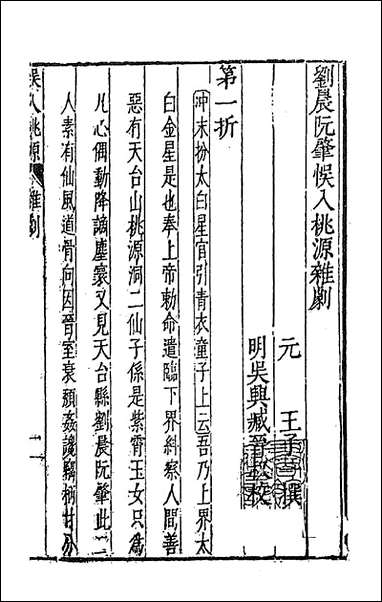 劉晨阮肇悞入桃源雜劇
元 王子一撰
明吳興臧晉叔校
第一折
沖末扮太白星官引青衣童子上云吾乃上界太
白金星是也奉上帝勅命遣臨下界糾察人間善
惡有天台山桃源洞二仙子係是紫霄玉女只為
凡心偶動降謫塵寰又見天台縣劉晨阮肇此二
人素有仙風道骨向因晉室衰頹姦讒竊柄甘分
悞入桃源 雜劇
一